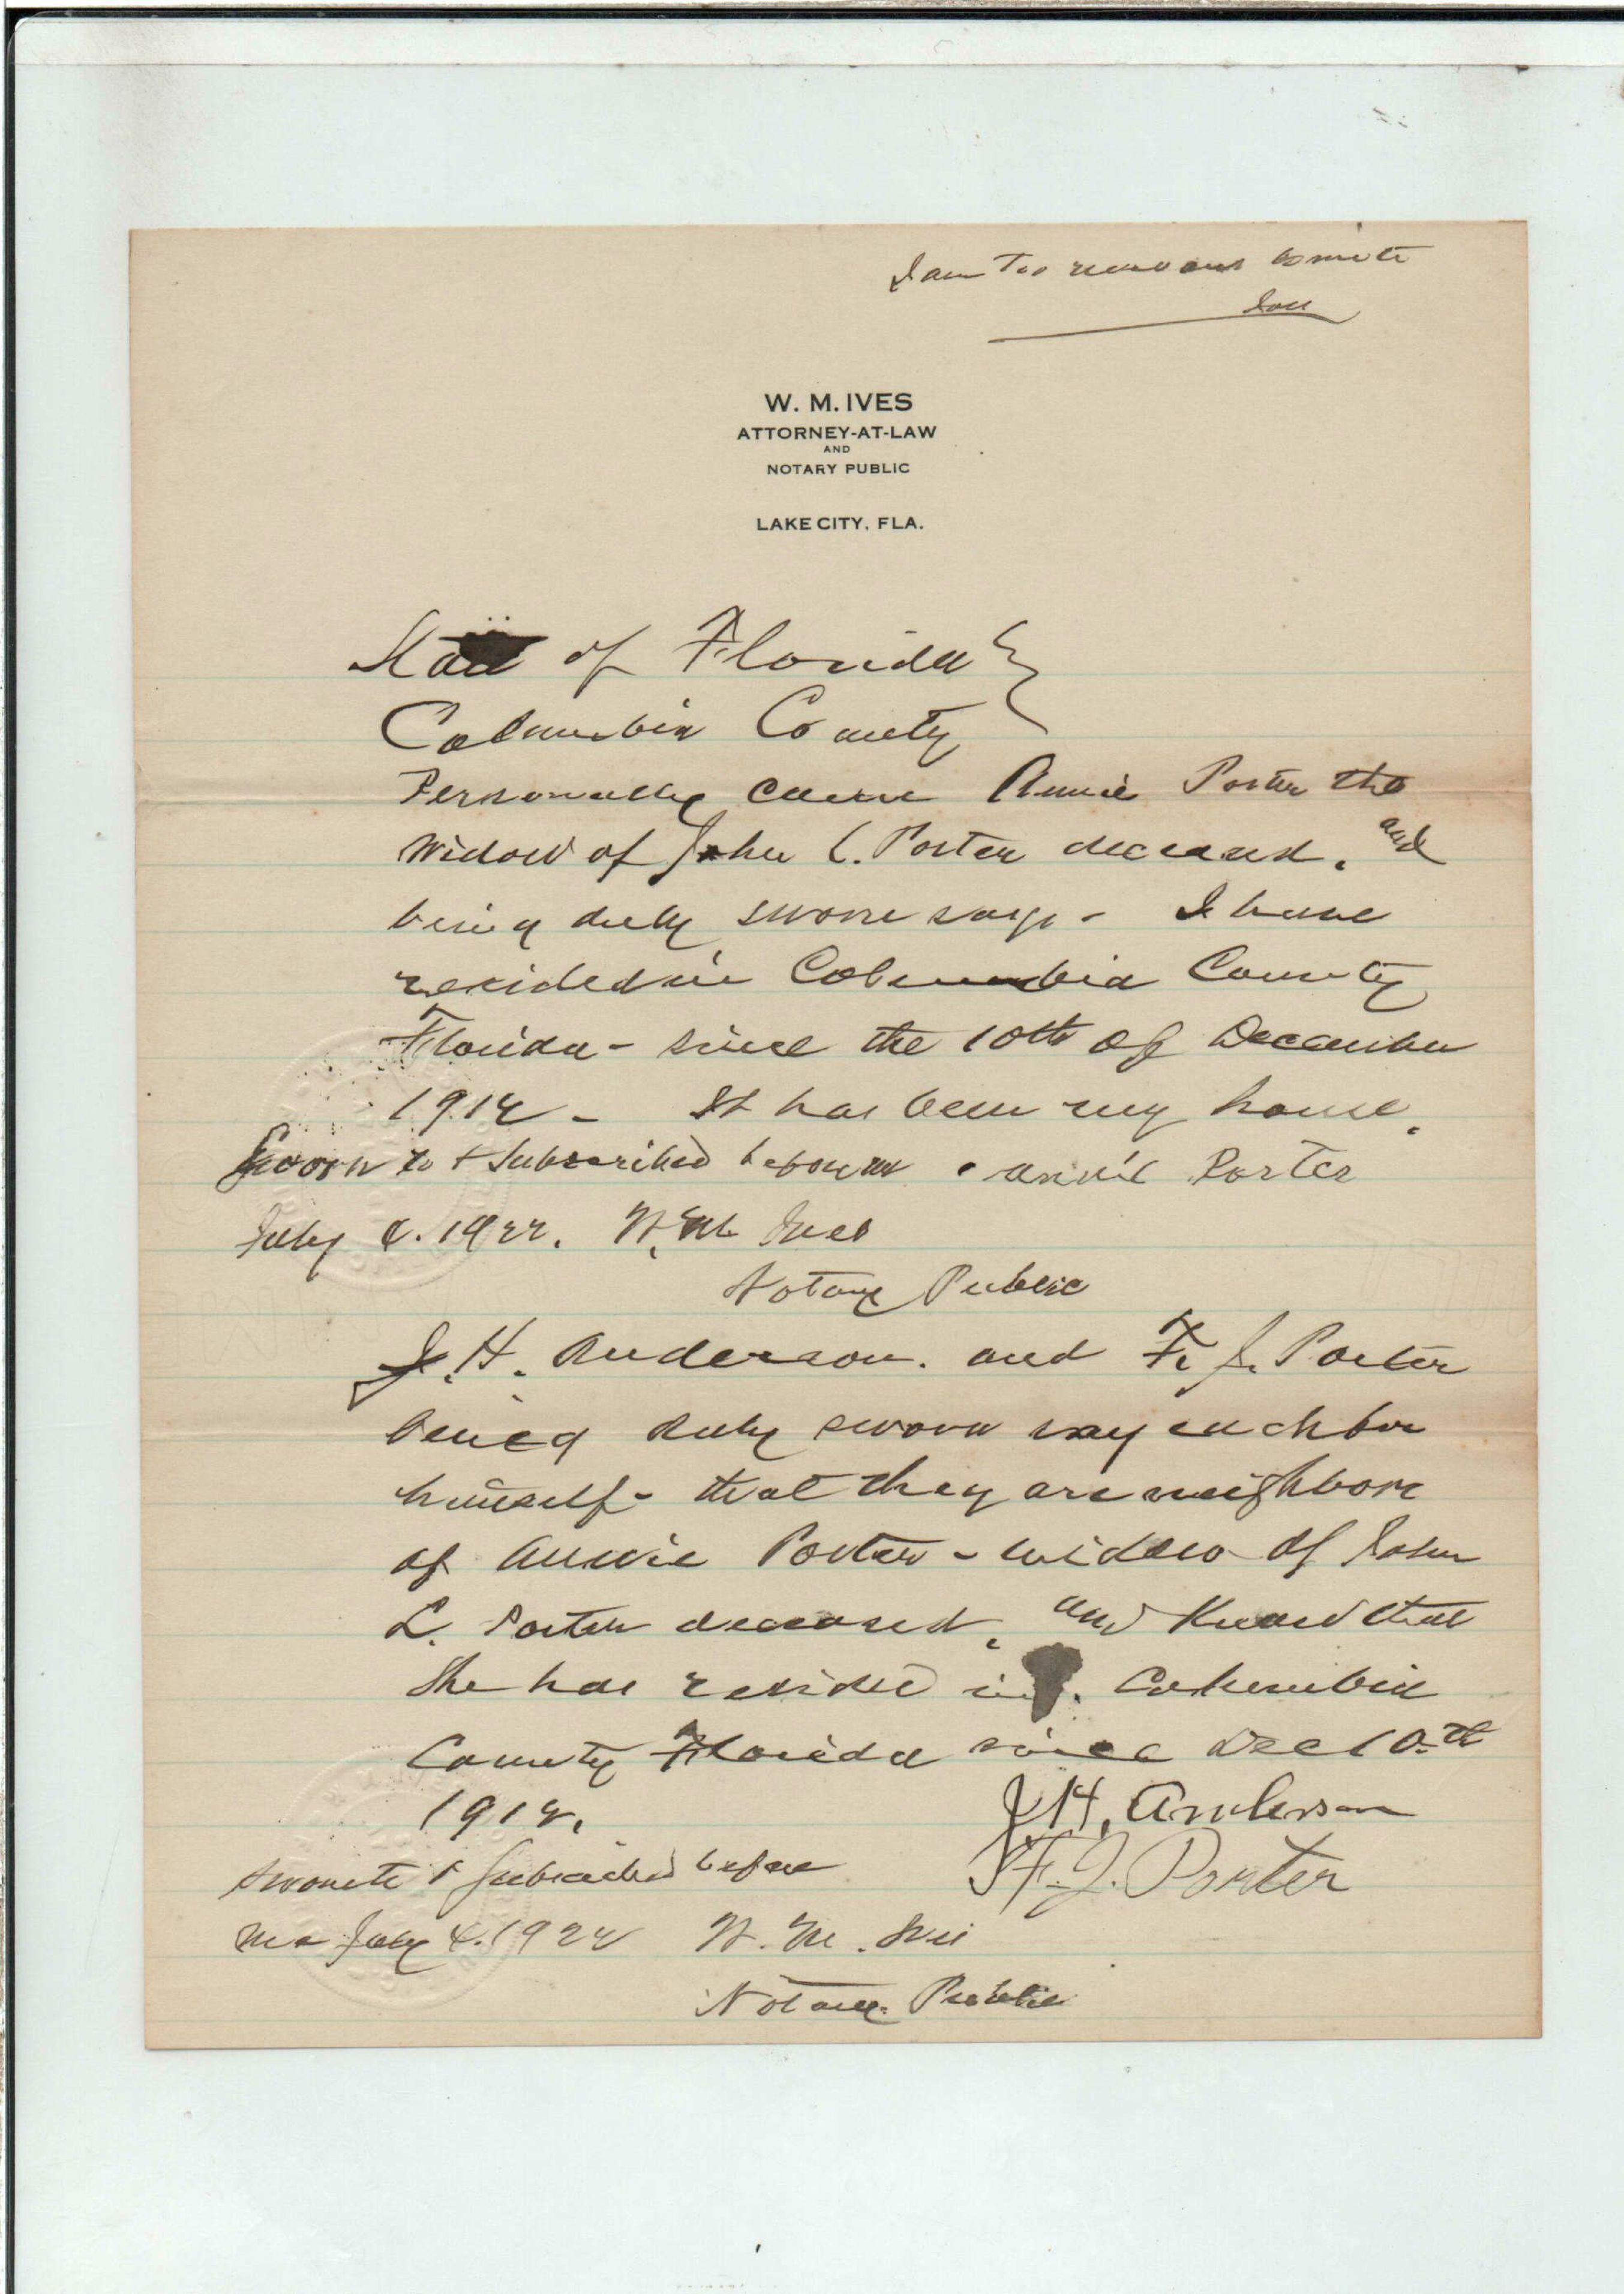 I am too nervous to write
W. M. IVES
ATTORNEY-AT-LAW
AND
NOTARY PUBLIC
LAKE CITY, FLA.
State of Florida }
Columbia County
Personally came Annie Porter the
widow of John L. Porter deceased. and
being duly sworn says - I have
resided in Columbia County
Florida - since the 10th of December
It has been my home.
Sworn to & subscribed before me . Annie Porter
July 4. 1922. W. M. Ives
Notary Public
J. H. Anderson. and F. J. Porter
being duly sworn say each for
himself - that they are neighbors
of Annie Porter - widow of John
L. Porter deceased, and know that
she has resided in Columbia
County Florida since Dec 10th
J H. Anderson
F. J. Porter
Sworn to & subscribed before
me July 4. 1922 W. M. Ives
Notary Public